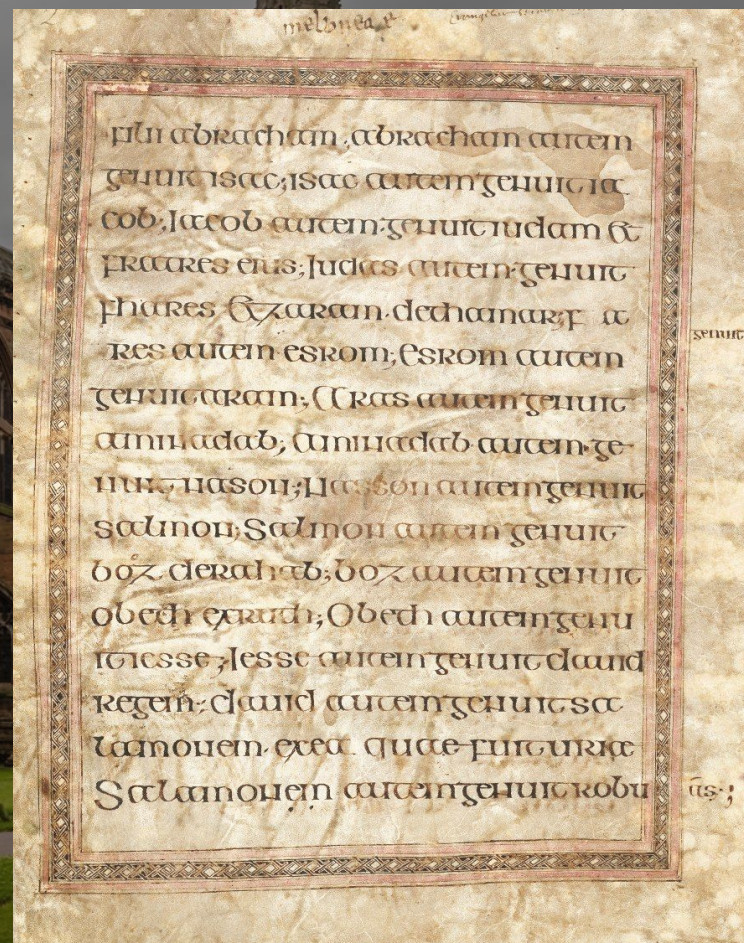 filii abracham, abracham autem
genuit isac; isac autem genuit ia
cob; Iacob autem genuit iudam &
fratres eius; Iudas autem genuit
phares & zaram de thamar; f a
res autem esrom; Esrom autem
genuit
genuit aram; Aras autem genuit
aminadab; Aminadab autem ge
nuit nason; Nasson autem genuit
salmon; Salmon autem genuit
boz de rahab; boz autem genuit
obeth exruth; Obeth autem genu
it iesse; Iesse autem genuit dauid
regem; dauid autem genuit sa
lamonem exea quae fuit uriae
Salamonem autem genuit robu